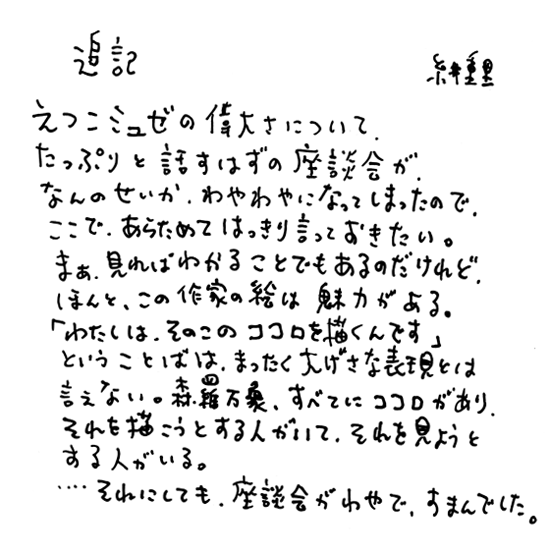 追記
糸井重里
えつこミュゼの偉大さについて、
たっぷりと話すはずの座談会が、
なんのせいか、わやわやになってしまったので、
ここで、あらためてはっきり言っておきたい。
まぁ、見ればわかることでもあるのだけれど、
ほんと、この作家の絵は魅力がある。
「わたしは、そのこのココロを描くんです」
ということばは、まったく大げさな表現とは
言えない。森羅万象、すべてにココロがあり、
それを描こうとする人がいて、それを見ようと
する人がいる。
‥‥それにしても、座談会がわやで、すまんでした。